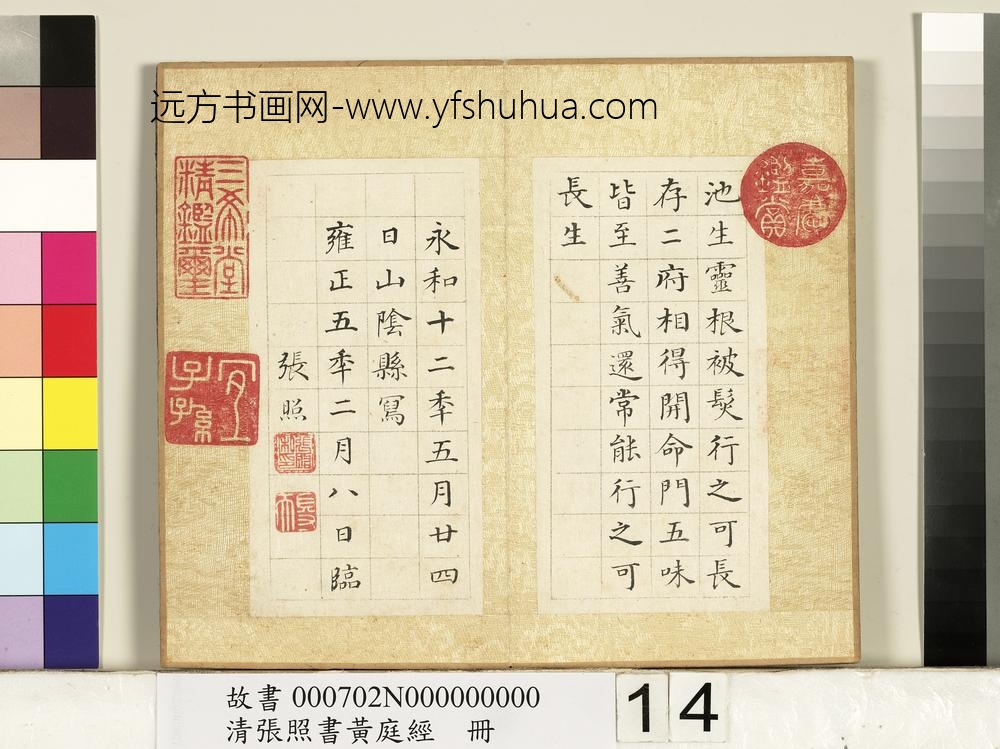 远方书画网-www.yfshuhua.com
嘉慶鑑賞
池生靈根被髮行之可長
存二府相得開命門五味
皆至善氣還常能行之可
長生
永和十二年五月廿四
日山陰縣寫
雍正五年二月八日臨
張照
三希堂
精鑑璽
宜
子孫
故書 000702N000000000
清張照書黃庭經 冊
14